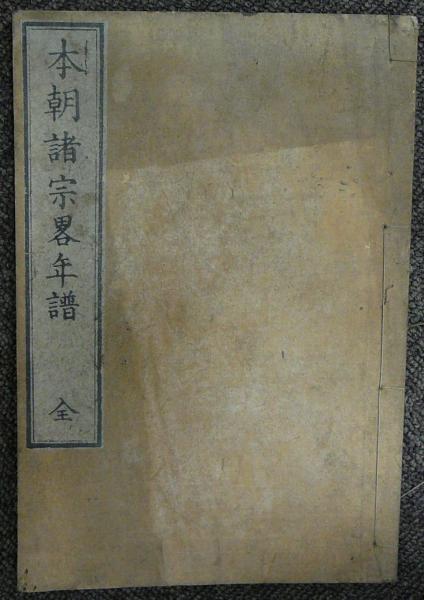 本朝諸宗畧年譜 全